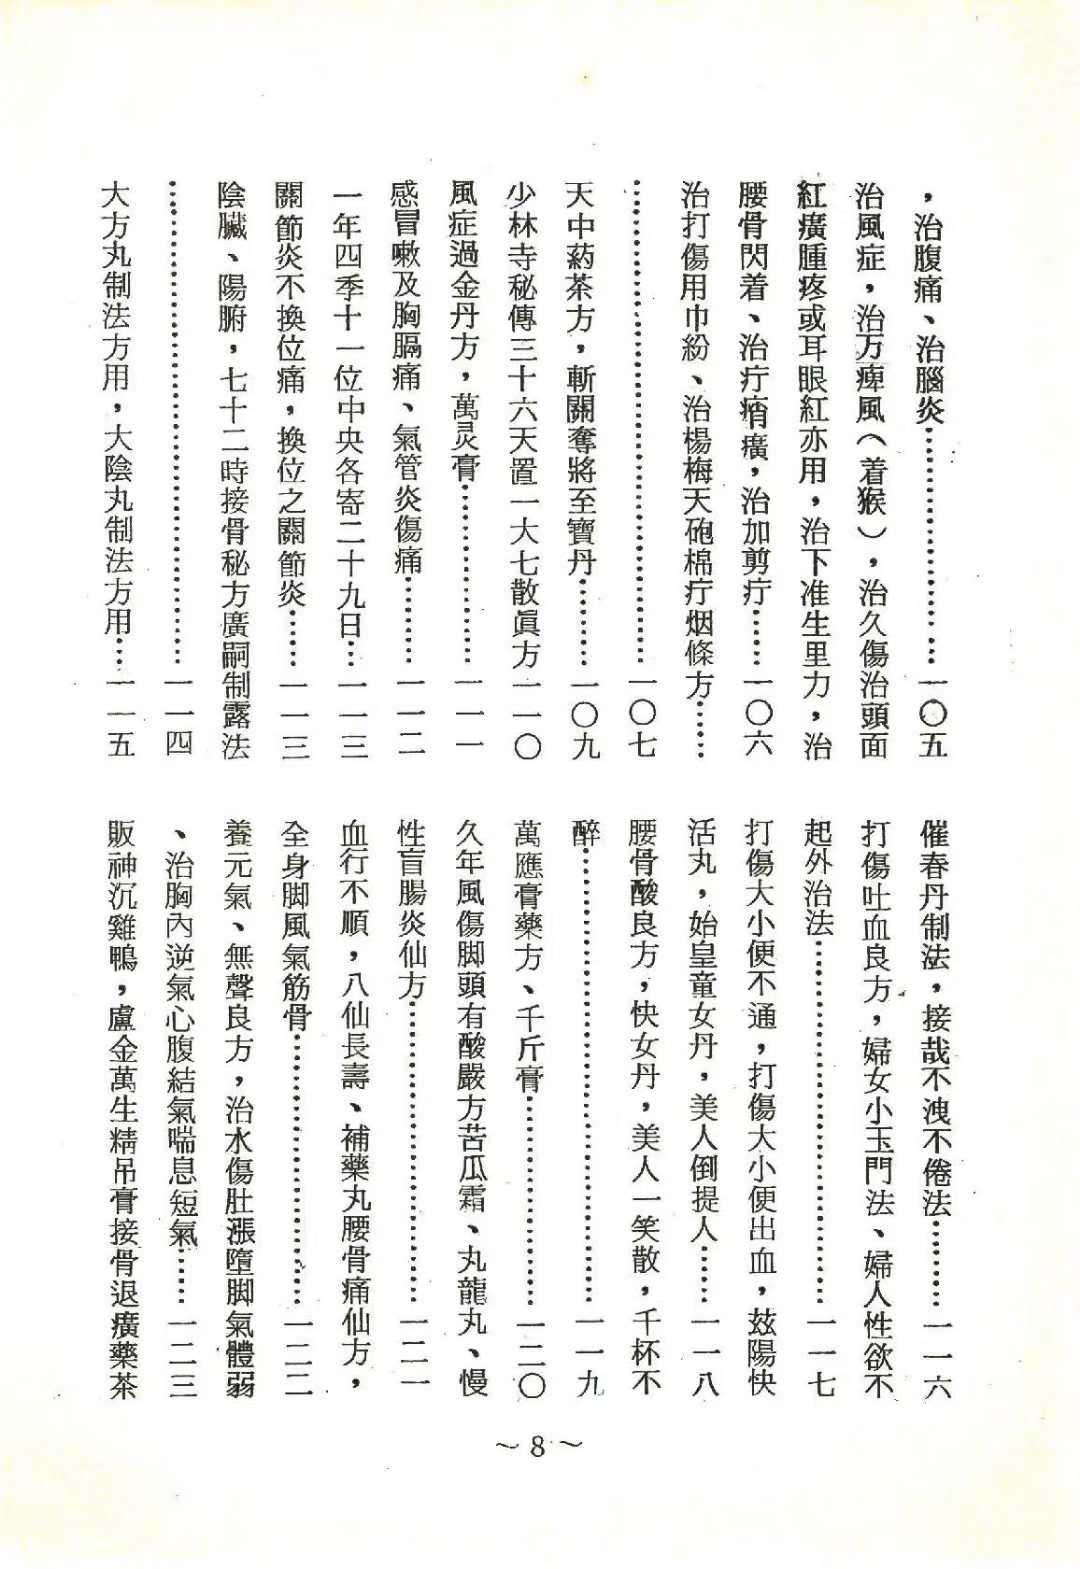 ，治腹痛、治腦炎……………………一〇五
治風症，治万痺風（着猴），治久傷治頭面
紅癀腫疼或耳眼紅亦用，治下准生里力，治
腰骨閃着、治疔痟癀，治加剪疔……一〇六
治打傷用巾紛、治楊梅天砲棉疔烟條方……
……………………………………一〇七
天中葯茶方，斬關奪將至寶丹………一〇九
少林寺秘傳三十六天置一大七散眞方一一〇
風症過金丹方，萬灵膏………………一一一
感冒嗽及胸膈痛、氣管炎傷痛………一一二
一年四季十一位中央各寄二十九日…一一三
關節炎不換位痛，換位之關節炎……一一三
陰臟、陽腑，七十二時接骨秘方廣嗣制露法
……………………………………一一四
大方丸制法方用，大陰丸制法方用…一一五
催春丹制法，接哉不洩不倦法………一一六
打傷吐血良方，婦女小玉門法、婦人性欲不
起外治法……………………………一一七
打傷大小便不通，打傷大小便出血，玆陽快
活丸，始皇童女丹，美人倒提人……一一八
腰骨酸良方，快女丹，美人一笑散，千杯不
醉……………………………………一一九
萬應膏藥方、千斤膏…………………一二〇
久年風傷脚頭有酸嚴方苦瓜霜、丸龍丸、慢
性盲腸炎仙方………………………一二一
血行不順，八仙長壽、補藥丸腰骨痛仙方，
全身脚風氣筋骨……………………一二二
養元氣、無聲良方，治水傷肚漲墮脚氣體弱
、治胸內逆氣心腹結氣喘息短氣……一二三
販神沉雞鴨，盧金萬生精吊膏接骨退癀藥茶
～8～